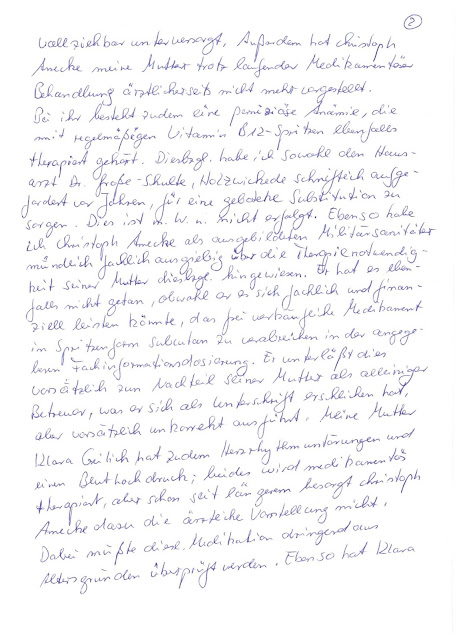 2
vollziehbar unterversorgt. Außerdem hat Christoph
Anecke meine Mutter trotz laufender Medikamentöser
Behandlung ärztlicherseits nicht mehr vorgestellt.
Bei ihr besteht zudem eine perniziöse Anämie, die
mit regelmäßigen Vitamin B12-Spritzen ebenfalls
therapiert gehört. Diesbzgl. habe ich sowohl den Haus-
arzt Dr. Große-Schulte, Holzwickede schriftlich aufge-
fordert vor Jahren, für eine gebotene Substitution zu
sorgen. Dies ist m. W. n. nicht erfolgt. Ebenso habe
ich Christoph Anecke als ausgebildeten Militärsanitäter
mündlich fachlich ausgiebig über die Therapienotwendig-
keit seiner Mutter diesbzgl. hingewiesen. Er hat es eben-
falls nicht getan, obwohl er es sich fachlich und finan-
ziell leisten könnte, das frei verkäufliche Medikament
in Spritzenform subcutan zu verabreichen in der angege-
benen Fachinformationsdosierung. Er unterläßt dies
vorsätzlich zum Nachteil seiner Mutter als alleiniger
Betreuer, was er sich als Unterschrift erschlichen hat,
aber vorsätzlich unkorrekt ausführt. Meine Mutter
Klara hat zudem Herzrhythmusstörungen und
einen Bluthochdruck; beides wird medikamentös
therapiert, aber schon seit längerem besorgt Christoph
Anecke dazu die ärztliche Vorstellung nicht.
Dabei müßte diese Medikation dringend aus
Altersgründen überprüft werden. Ebenso hat Klara